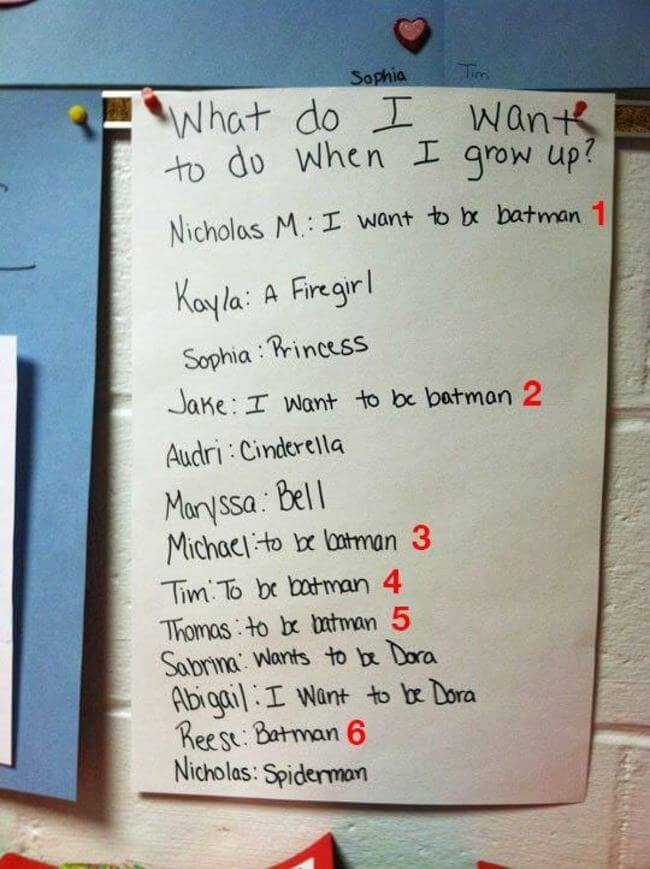 Sophia Tim
What do I want
to do when I grow up?
Nicholas M.: I want to be batman 1
Kayla: A Firegirl
Sophia: Princess
Jake: I want to be batman 2
Audri: Cinderella
Maryssa: Bell
Michael: to be batman 3
Tim: To be batman 4
Thomas: to be batman 5
Sabrina: wants to be Dora
Abigail: I want to be Dora
Reese: Batman 6
Nicholas: Spiderman